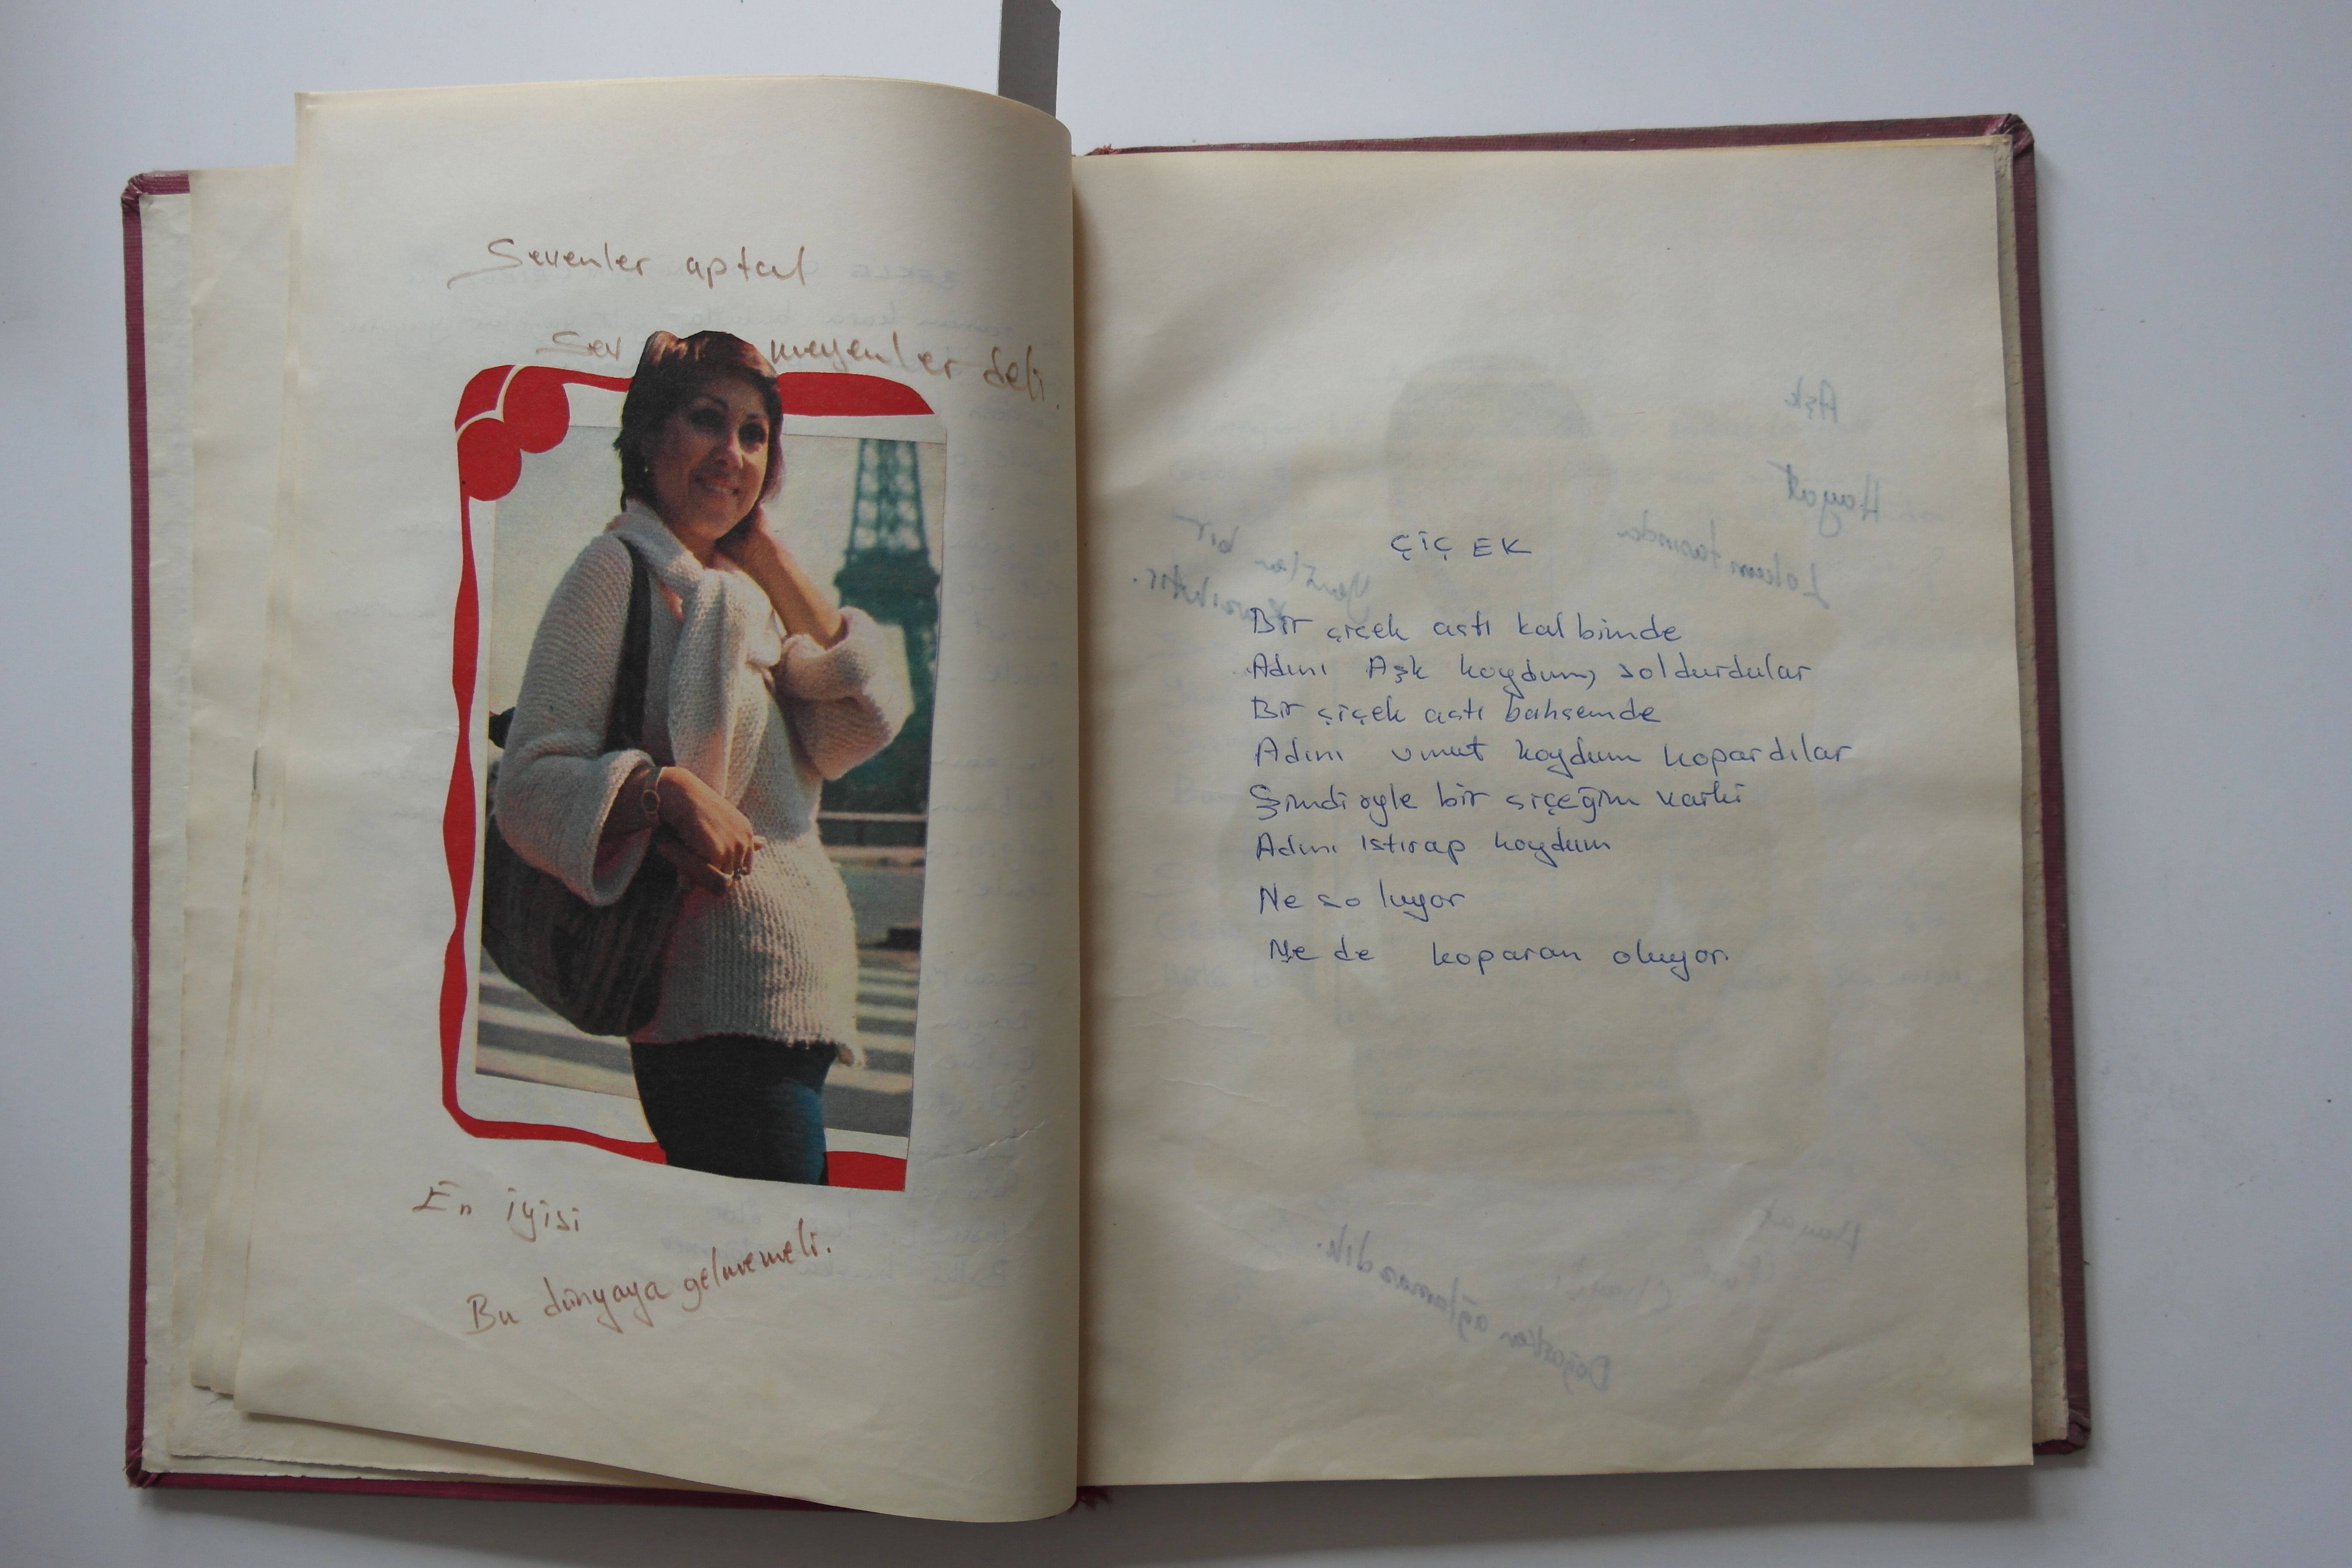 Sevenler aptal
Sev meyenler deli.
En iyisi
Bu dünyaya gelmemeli.
ÇİÇEK
Bir çiçek astı kalbimde
Adını Aşk koydum, soldurdular
Bir çiçek astı bahsemde
Adını umut koydum kopardılar
Şimdi öyle bir siçeğim varki
Adını ıstırap koydum
Ne soluyor
Ne de koparan oluyor.
Aşk
Hayat
Lokantasında
Yenilen bir
Doğarken ağlamazdık.